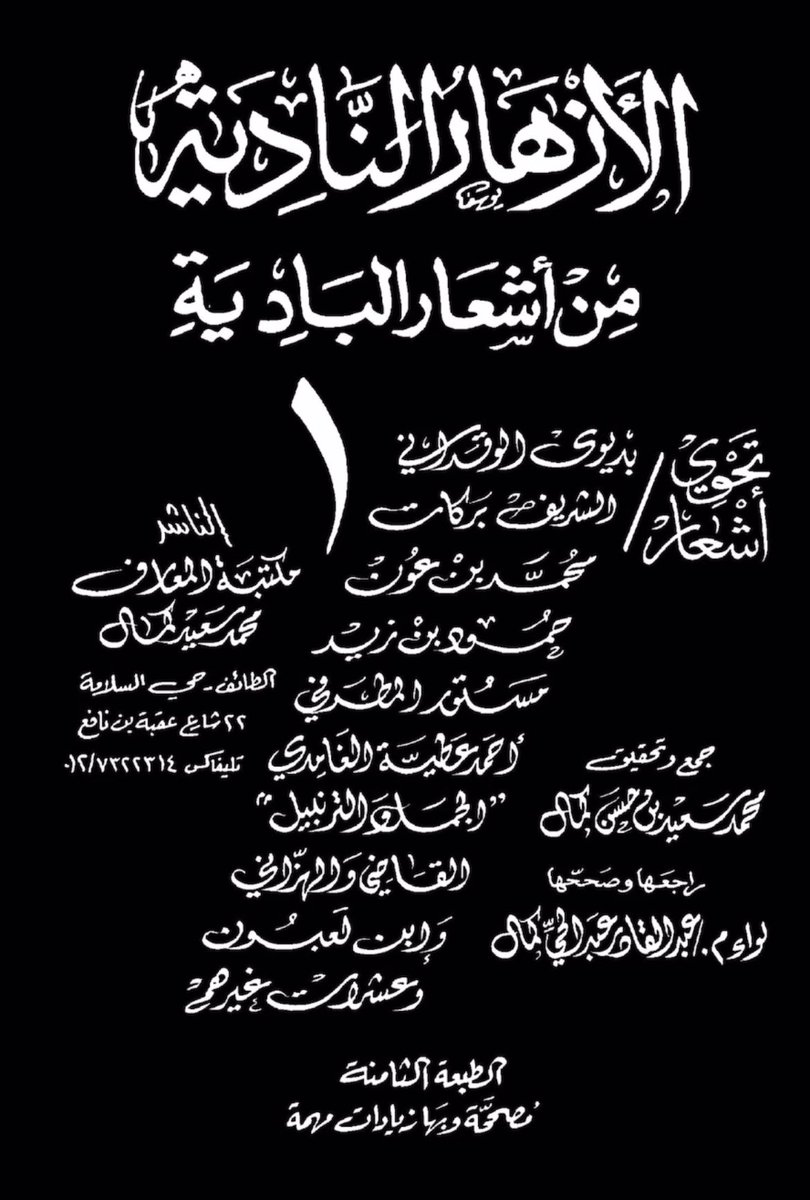 الأزهار النادية
يوسف
من أشعار البادية
١
تحوي أشعار /
بديوى الوقداني
الشريف بركات
محمد بن عون
حمود بن زيد
مستور المطرفي
أحمد عطية الغامدي
"الجمل والترنبيل"
القاضي والهزاني
وابن لعبون
وعشرات غيرهم
الناشر
مكتبة المعارف
محمد سعيد كمال
الطائف - حي السلامة
٢٢ شارع عقبة بن نافع
تليفاكس ٠١٢/٧٣٢٢٣١٤
جمع وتحقيق
محمد سعيد بن حسن كمال
راجعها وصححها
لواء م./عبدالقادر عبدالحيّ كمال
الطبعة الثامنة
مُصححَّة وبها زيادات مهمة